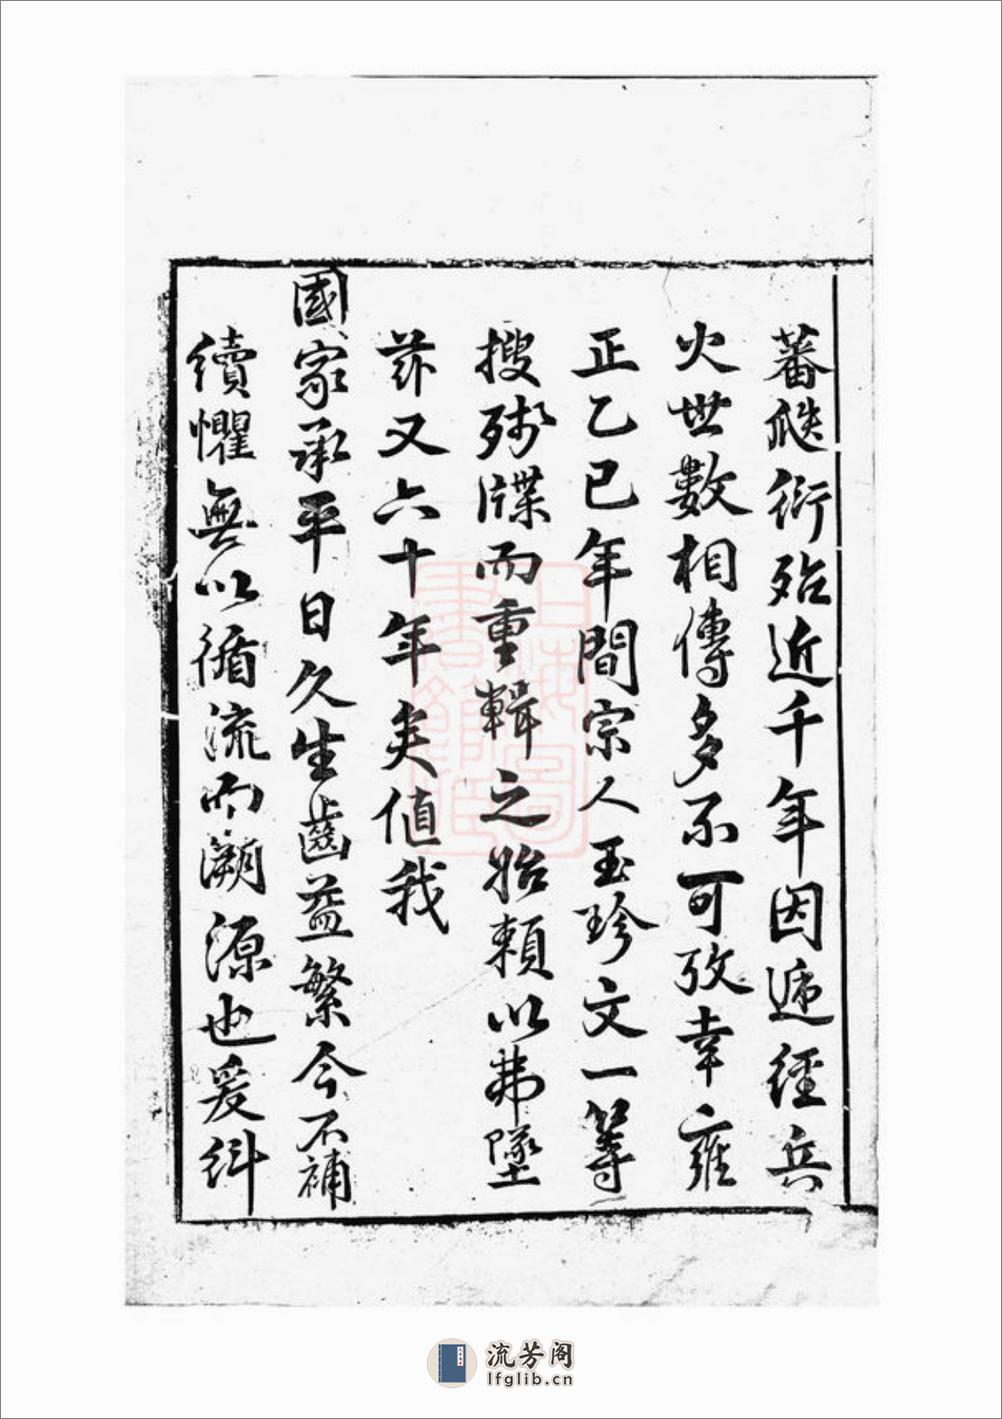 蕃瓞衍殆近千年因遞經兵
火世數相傳多不可攷幸雍
正乙巳年間宗人玉珍文一等
搜殘牒而重輯之始賴以弗墜
茲又六十年矣值我
國家承平日久生齒益繁今不補
續懼無以循流而溯源也爰糾
上海圖書館藏
流芳阁
lfglib.cn